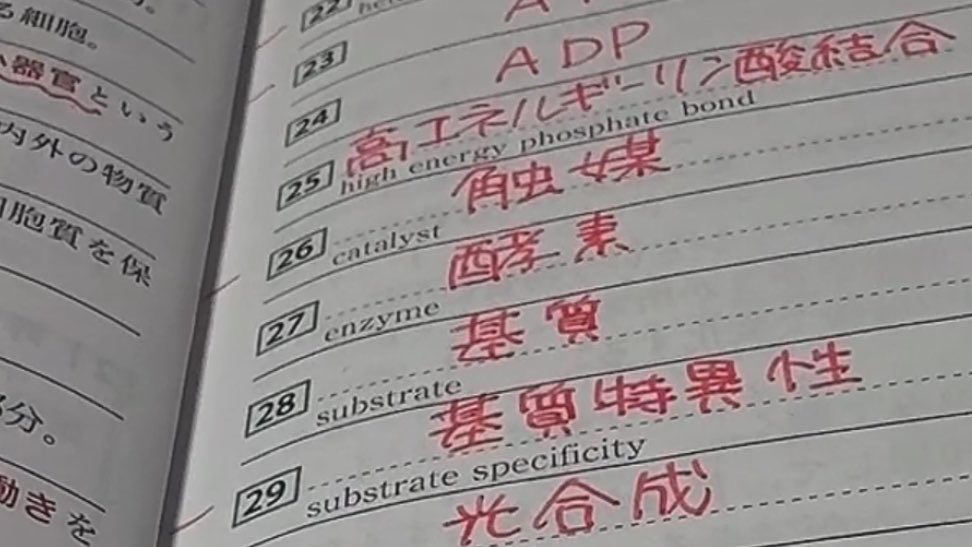 る細胞。
小器官という
内外の物質
胞質を保
分。
動きを
22
23
ADP
24
高エネルギーリン酸結合
25 high energy phosphate bond
触媒
26 catalyst
酵素
27 enzyme
基質
28 substrate
基質特異性
29 substrate specificity
光合成